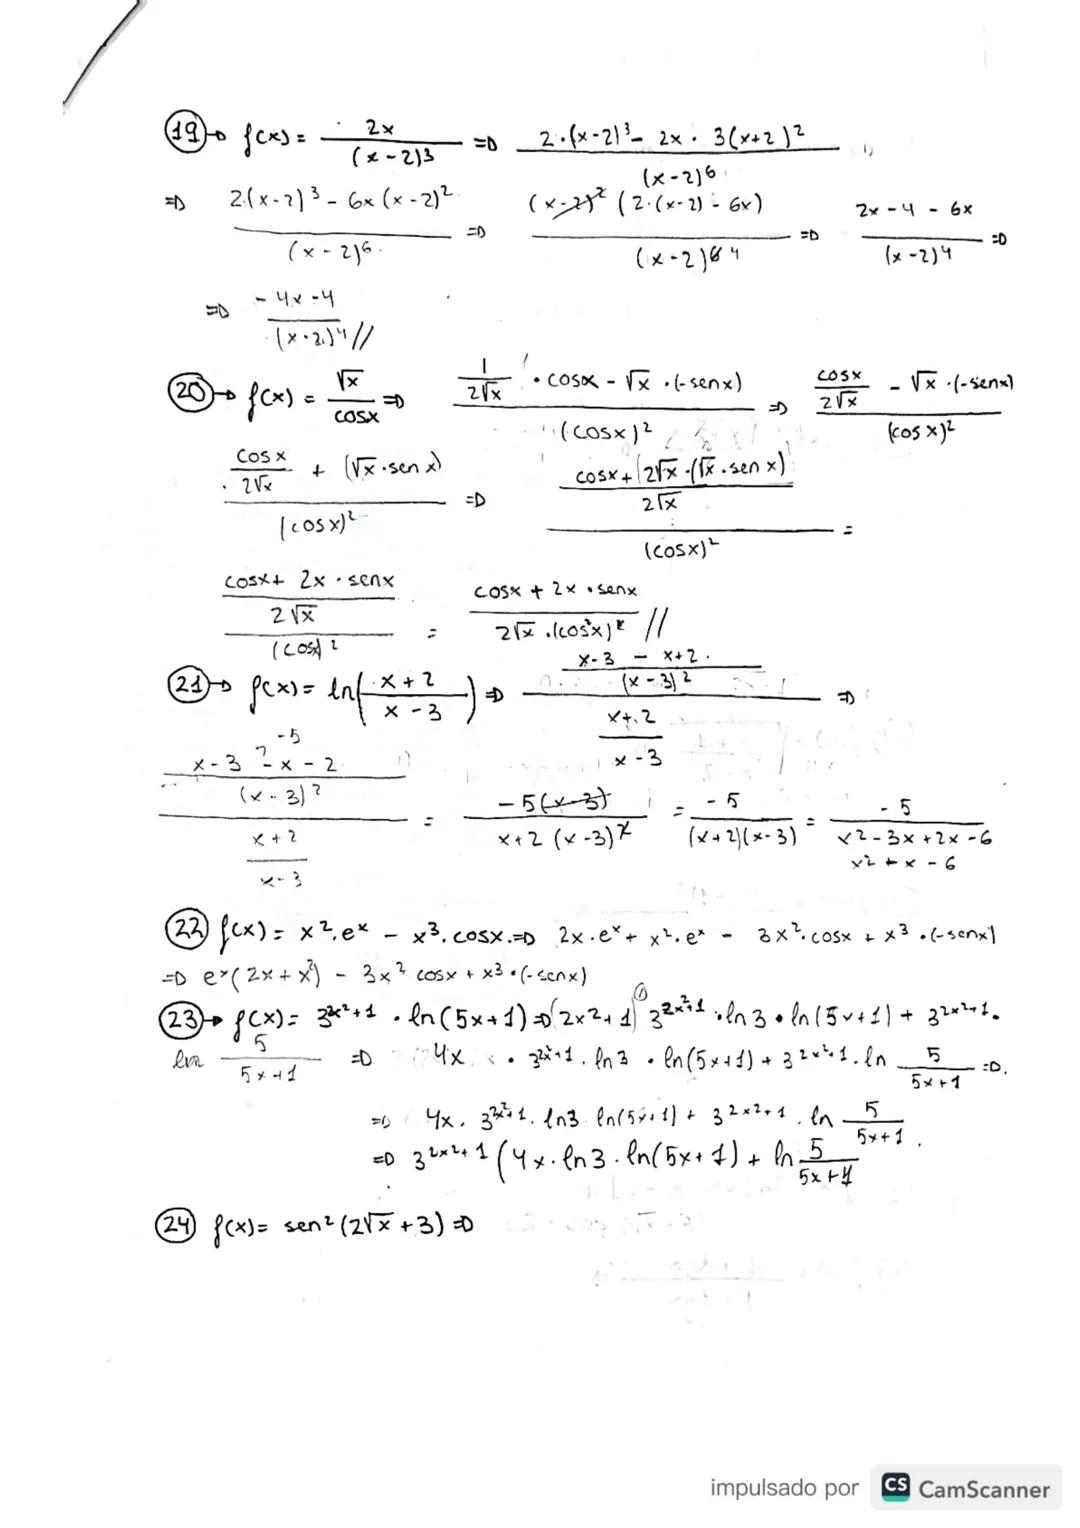 19 → f(x) = 2x / (x-2)3 => 2·(x-2)³ - 2x · 3(x+2)² / (x-2)6
=> 2·(x-2)³ - 6x(x-2)² / (x-2)6 => (x-2)² (2·(x-2) - 6x) / (x-2)6 4 => 2x - 4 - 6x / (x-2)4 =>
=> -4x-4 / (x-2)4 //
20 → f(x) = √x / cosx => 1/2√x · cosx - √x · (-senx) / (cosx)² => cosx/2√x - √x · (-senx) / (cosx)²
cosx/2√x + (√x·senx) / (cosx)² => cosx + (2√x · (√x · senx) / 2√x / (cosx)² =
cosx + 2x · senx / 2√x / (cosx)² = cosx + 2x · senx / 2√x · (cos²x) //
21 → f(x) = ln( x+2 / x-3 ) => x-3 - x+2 / (x-3)² / x+2 / x-3 =>
-5
x-3 - x - 2 / (x-3)² / x+2 / x-3 = -5(x-3) / x+2 (x-3)² = -5 / (x+2)(x-3) = -5 / x2-3x+2x-6
x2 + x - 6
22 f(x) = x²·eˣ - x³·cosx => 2x·eˣ + x²·eˣ - 3x²·cosx + x³·(-senx)
=> eˣ(2x+x²) - 3x² cosx + x³·(-senx)
23 → f(x) = 3^2x²+1 · ln(5x+1) => (2x2+1) 3^2x²+1 · ln3 · ln(5x+1) + 3^2x²+1 ·
ln 5 / 5x+1 => 4x · 3^2x²+1 · ln3 · ln(5x+1) + 3^2x²+1 · ln 5 / 5x+1 =>.
=> 4x · 3^2x²+1 · ln3 · ln(5x+1) + 3^2x²+1 · ln 5 / 5x+1 .
=> 3^2x²+1 (4x · ln3 · ln(5x+1) + ln 5 / 5x+1
24 f(x) = sen²(2√x+3) =>
impulsado por CS CamScanner